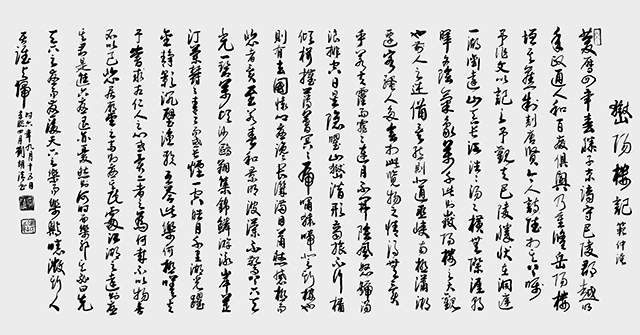 嶽陽樓記 范仲淹
慶曆四年春滕子京謫守巴陵郡越明
年政通人和百廢俱興乃重修岳陽樓
增其舊制刻唐賢今人詩賦於其上囑
予作文以記之予觀夫巴陵勝狀在洞庭
一湖銜遠山吞長江浩浩湯湯橫無際涯朝
暉夕陰氣象萬千此則岳陽樓之大觀
也前人之述備矣然則北通巫峽南極瀟湘
遷客騷人多會於此覽物之情得無異
乎若夫霪雨霏霏連月不開陰風怒號濁
浪排空日星隱曜山嶽潛形商旅不行檣
傾楫摧薄暮冥冥虎嘯猿啼登斯樓也
則有去國懷鄉憂讒畏譏滿目蕭然感極而
悲者矣至若春和景明波瀾不驚上下天
光一碧萬頃沙鷗翔集錦鱗游泳岸芷
汀蘭郁郁青青而或長煙一空皓月千里浮光躍
金靜影沉璧漁歌互答此樂何極嗟夫
予嘗求古仁人之心或異二者之為何哉不以物喜
不以己悲居廟堂之高則憂其民處江湖之遠則憂
其君是進亦憂退亦憂然則何時而樂耶其必曰先
天下之憂而憂後天下之樂而樂歟噫微斯人
吾誰與歸
年九月十五日